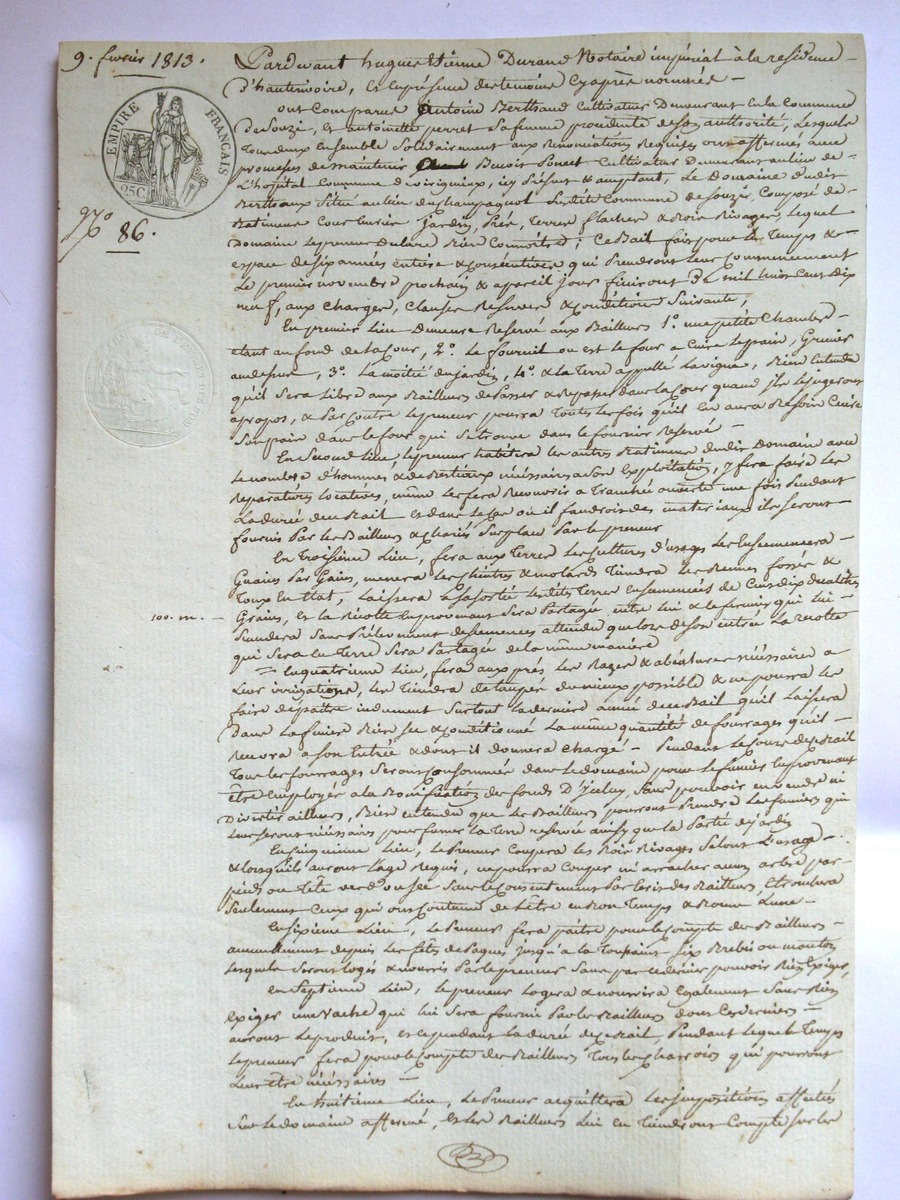 9. fevrier 1813.
EMPIRE FRANÇAIS
25C
N° 86.
Pardevant hugues Etienne Durand Notaire impérial à la residence
d'hauterivoire, Et En présence des temoins Cyaprès nommés
ont Comparus Antoine Berthaud Cultivateur Demeurant En la Commune
de Souzi, et antoinette perret Sa femme procedente de Son authorité, Lesquels
Tous deux Ensemble Solidairement aux Renonciations Requises ont affermés avec
promesses de maintenir Benoit Poncet Cultivateur Demeurant au lieu de
L'hôpital Commune d'virigneux, icy Présent & acceptant, Le Domaine dudit
Berthaud Situé au lieu du Champaquot Susdite Commune de Souzi, Composé de
Batiments Cour Curtis jardin, Pré, Terres flaches & Bois Rivages, Lequel
Domaine Le preneur declare Bien Connoitre; Ce Bail fait pour le Temps &
espace de Six années entieres & Consécutives qui Prendront Leur Commencement
Le premier novembre prochain & a pareil jour finiront De mil huit Cent dix
neuf, aux Charges, Clauses Reserves & Conditions Suivantes;
En premier Lieu demeure Reservé aux Bailleurs 1°. une petite Chambre
etant au fond de la Cour, 2°. Le fournil ou est le four a Cuire Le pain, Grenier
au dessus, 3°. La moitié du jardin, 4°. & la Terre appellé La vigne, Bien Entendu
qu'il Sera Libre aux Bailleurs de Passer & Repasser dans la Cour quand ils le jugeront
apropos, & Par Contre Le preneur pourra Toutes Les fois qu'il En aura Besoin Cuire
Son pain dans le four qui Se trouve dans le fournier Reservé
En Second Lieu, Le preneur habitera les autres Batiments dudit Domaine avec
Le nombre d'hommes & de Bestiaux nécéssaires a Son Exploitation, y fera faire les
Reparations locatives, même les fera Recouvrir a Tranchée ouverte une fois Pendant
La durée du Bail et dans le Cas où il faudroit des matériaux ils Seront
fournis Par les Bailleurs & chariés Sur place Par le preneur
En Troisieme Lieu, fera aux Terres Les Cultures d'usages Les Ensemencera
Grains Par Grains, menera les & molards Tiendra les Rennes fossés &
Toux En Etat, Laissera a La Sortie Lesdites Terres Ensemencées de Cent dix decalitres
100. m.
Grains, et La récolte En provenant Sera Partagée entre Lui & le fermier qui Lui
Succedera Sans Prélevement des Semences attendu que lors de Son entrée La récolte
qui Sera En Terre Sera Partagée de la même manière
En quatrieme Lieu, fera aux prés les Razes & abéatures nécéssaires a
Leur irrigations, les Tiendra detaupés du mieux possible & ne pourra les
faire depaitre induement Surtout la derniere année du Bail qu'il Laissera
Dans la finiere Bien Sec & Conditionné La même quantité de fourrages qu'il
Recevra a Son Entrée & dont il donnera Chargé - Pendant le Cours du Bail
Tous les fourrages Seront Consommés dans le domaine pour les fumiers En provenant
être Employés a la Bonification des fonds D'Iceluy, Sans pouvoir en vendre ni
Divertir ailleurs, Bien entendu que les Bailleurs pourront Prendre Les fumiers qui
Leur Seront nécéssaires pour fumer La Terre reservée ainsy que La Partie de jardin
En Cinquieme Lieu, Le Preneur Coupera les Bois Rivages Selont L'usage
& lorsqu'ils auront L'age Requis, ne pourra Couper ni arracher aucun arbre par
pieds ou Tête verd ou Sec Sans le Consentement Par Ecrit des Bailleurs Etrondera
Seulement Ceux qui ont Coutume de L'être en Bon Temps & Bonne Lune
En Sixieme Lieu, Le Preneur fera paître pour le Compte des Bailleurs
annuellement depuis les fêtes de Paques jusqu'a la Toussaint Six Brebis ou moutons
Lesquels Seront logés & nourris Par le preneur Sans par ce dernier pouvoir Rien Exiger,
En Septieme Lieu, Le preneur Logera & nourrira Egalement Sans Rien
Exiger une vache qui lui Sera fournie Par les Bailleurs dont Ces derniers
auront Le produit, et Ce pendant La durée du Bail, Pendant Lequel Temps
Le preneur fera pour le Compte des Bailleurs Tous les Charrois qui pourront
Leur être nécéssaires
En huitieme Lieu, Le Preneur acquittera Les impositions affectées
Sur le domaine affermé, et les Bailleurs Lui en Tiendront Compte Sur le